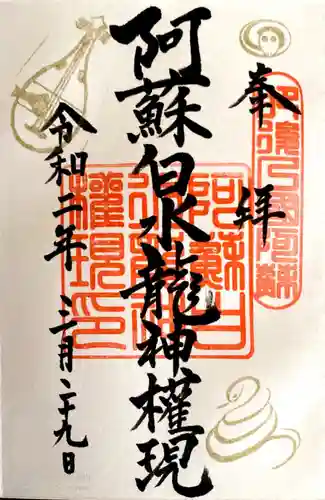 奉拝
阿蘇白水龍神權現
令和二年三月二十九日